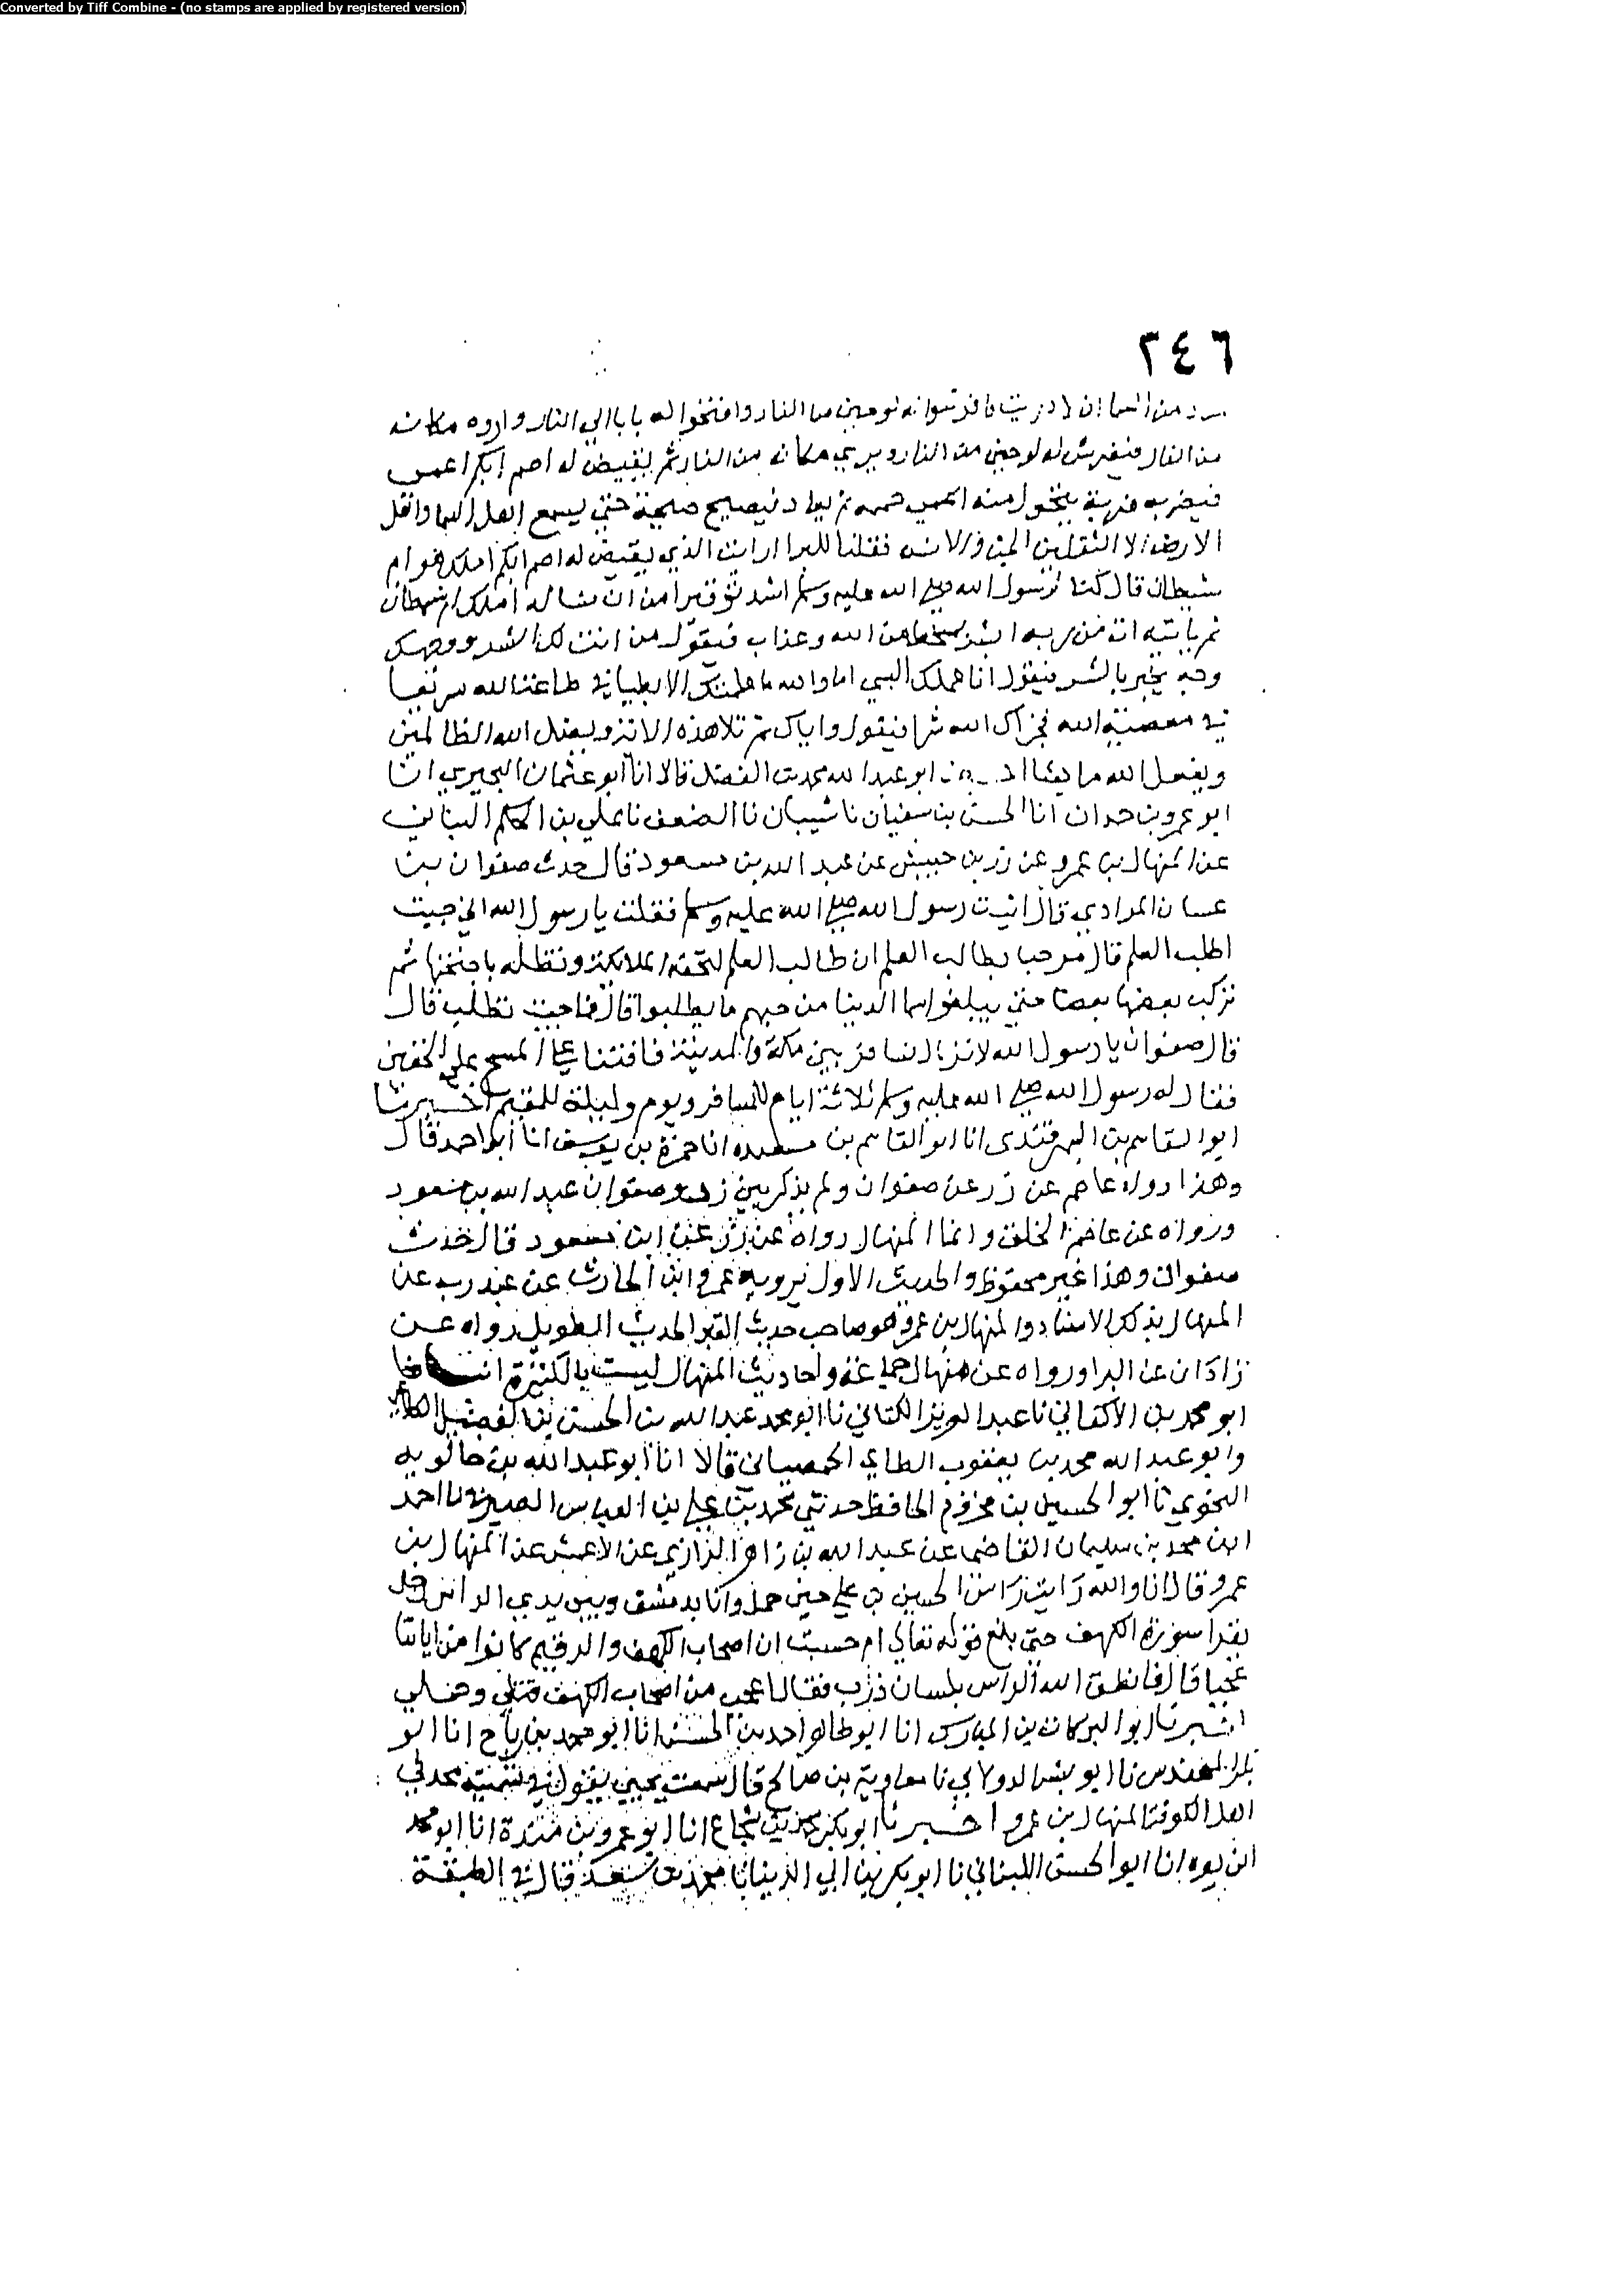 Converted by Tiff Combine - (no stamps are applied by registered version)
٢٤٦
من السما ان لا دريت فافرشوا له لوحين من النار وافتحوا له بابا الي النار واروه مكانه
من النار فيفرش له لوحين من النار ويري مكانه من النار ثم يقيض له اصم ابكم اعمى
فيضربه ضربة يتحول منه حممه ثم يعاد فيصيح صيحة حتى يسمع اهل السما واهل
الارض الا الثقلين الجن والانس فقلنا للبرا ارايت الذي يقيض له اصم ابكم املك هو ام
شيطان قال كنا لرسول الله صلي الله عليه وسلم اشد توقيرا من ان نساله املك ام شيطان
ثم ياتيه ات من ربه اشد سخطا من الله وعذاب فيقول من انت لك الشر ووجهك
وجه يخبر بالشر فيقول انا عملك السي اما والله ما علمتك الا بطيا في طاعة الله سريعا
في معصية الله فجزاك الله شرا فيقول واياك ثم تلا هذه الاية ويضل الله الظالمين
ويفعل الله ما يشا ابو عبد الله محمد بن الفضل قالا انا ابو عثمان البحيري انا
ابو عمرو بن حمدان انا الحسن بن سفيان نا شيبان نا الصعق نا علي بن الحكم البناني
عن المنهال بن عمرو عن زر بن حبيش عن عبد الله بن مسعود قال حدث صفوان بن
عسان المرادي قال اتيت رسول الله صلي الله عليه وسلم فقلت يا رسول الله اني جيت
اطلب العلم قال مرحبا بطالب العلم ان طالب العلم لتحفه الملايكة وتظله باجنحتها ثم
تركب بعضها بعضا حتى يبلغوا سما الدنيا من حبهم ما يطلبوا قال فما جيت تطلب قال
قال صفوان يا رسول الله لا نزال نسافر بين مكة والمدينة فافتنا عن المسح على الخفين
فقال له رسول الله صلي الله عليه وسلم ثلاثة ايام للمسافر ويوم وليلة للمقيم اخبرنا
ابو القاسم بن السمرقندي انا ابو القاسم بن مسعده انا حمزة بن يوسف انا ابو احمد قال
وهذا رواه عاصم عن زر عن صفوان ولم يذكر بين زر وصفوان عبد الله بن مسعود
ورواه عن عاصم الخلق وانما المنهال رواه عن زر عن ابن مسعود قال حدث
صفوان وهذا غير محفوظ والحديث الاول يرويه عمرو ابن الحارث عن عبد ربه عن
المنهال بذلك الاسناد والمنهال بن عمرو هو صاحب حديث القبر الحديث الطويل رواه عن
زاذان عن البرا ورواه عن منهال جماعة واحاديث المنهال ليست بالكثيرة
ابو محمد بن الاكفاني نا عبد العزيز الكتاني نا ابو محمد عبد الله بن الحسن بن الفضل
وابو عبد الله محمد بن يعقوب الطاي الحمصيان قالا انا ابو عبد الله بن خالويه
النحوي نا ابو الحسين بن مخزوم الحافظ حدثني محمد بن علي بن العباس الصيرفي نا احمد
ابن محمد بن سليمان القاضي عن عبد الله بن زاهر الرازي عن الاعمش عن المنهال بن
عمرو قال انا والله رايت راس الحسين بن علي حين حمل وانا بدمشق وبين يدي الراس رجل
يقرا سورة الكهف حتى بلغ قوله تعالى ام حسبت ان اصحاب الكهف والرقيم كانوا من اياتنا
عجبا قال فانطق الله الراس بلسان ذرب فقال اعجب من اصحاب الكهف قتلي وحملي
اخبرنا ابو البركات بن المبارك انا ابو طاهر احمد بن الحسن انا ابو محمد بن رباح انا ابو
بكر المهندس نا ابو بشر الدولابي نا معاوية بن صالح قال سمعت يحيى يقول في تسمية محدثي
اهل الكوفة المنهال بن عمرو اخبرنا ابو بكر محمد بن شجاع انا ابو عمرو بن مندة انا ابو محمد
ابن يوه انا ابو الحسن اللبناني نا ابو بكر بن ابي الدنيا نا محمد بن سعد قال في الطبقة